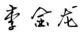 李金龙